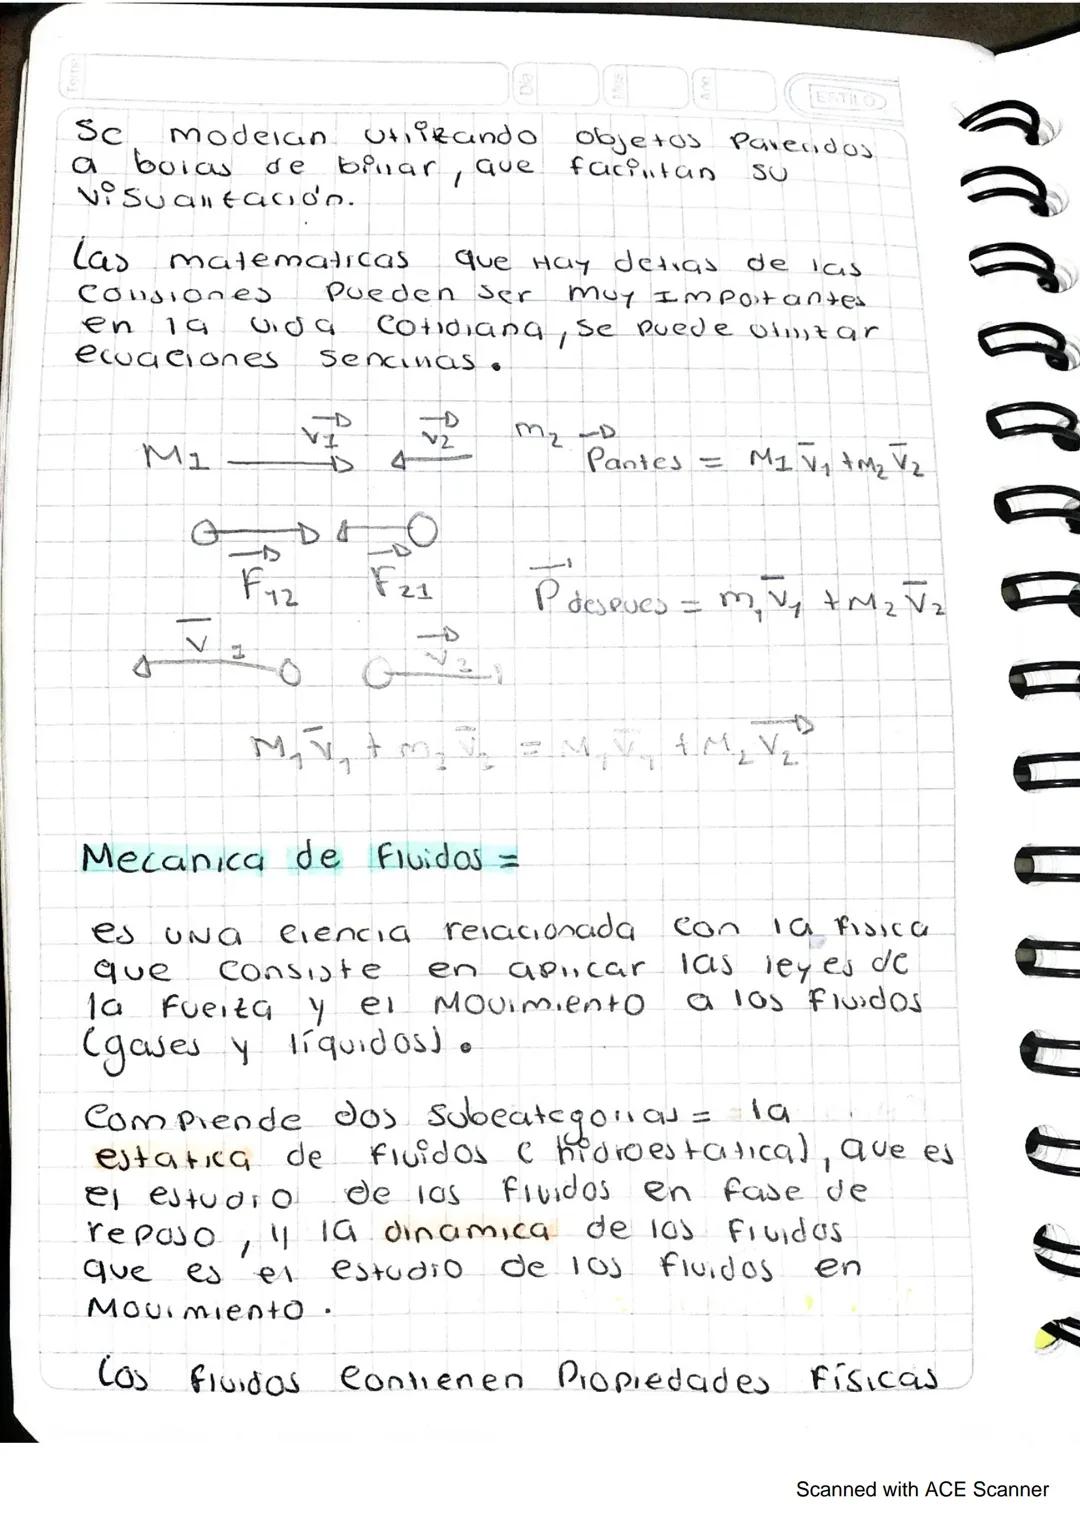 Tema Día Mes Año ESTILO
Se modelan utilizando objetos Parecidos
a bolas de billar, que facilitan su
visualización.
Las matematicas que Hay detras de las
Colisiones pueden ser muy Importantes
en la vida Cotidiana, se puede utilizar
ecuaciones sencillas.
M1 v1 v2 m2
Pantes = M1 v1 + M2 v2
F12 F21
P despues = m1 v1 + M2 v2
v1 v2
M1 v1 + m2 v2 = M1 v1 + M2 v2
Mecanica de Fluidos =
es una ciencia relacionada con la fisica
que consiste en aplicar las leyes de
la fuerza y el Movimiento a los fluidos
(gases y líquidos).
Comprende dos subcategorias = la
estatica de fluidos (hidroestatica), que es
el estudio de los fluidos en fase de
reposo, y la dinamica de los fluidos
que es el estudio de los fluidos en
Movimiento.
Los fluidos contienen Propiedades Físicas
Scanned with ACE Scanner